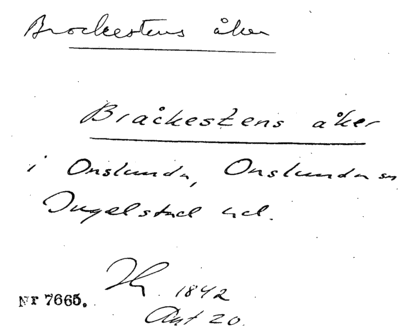 Brockestens åker
Bråckestens åker
i Onslunda, Onslunda sn
Ingelstad hd.
1842
Akt 20.
Nr 7665.